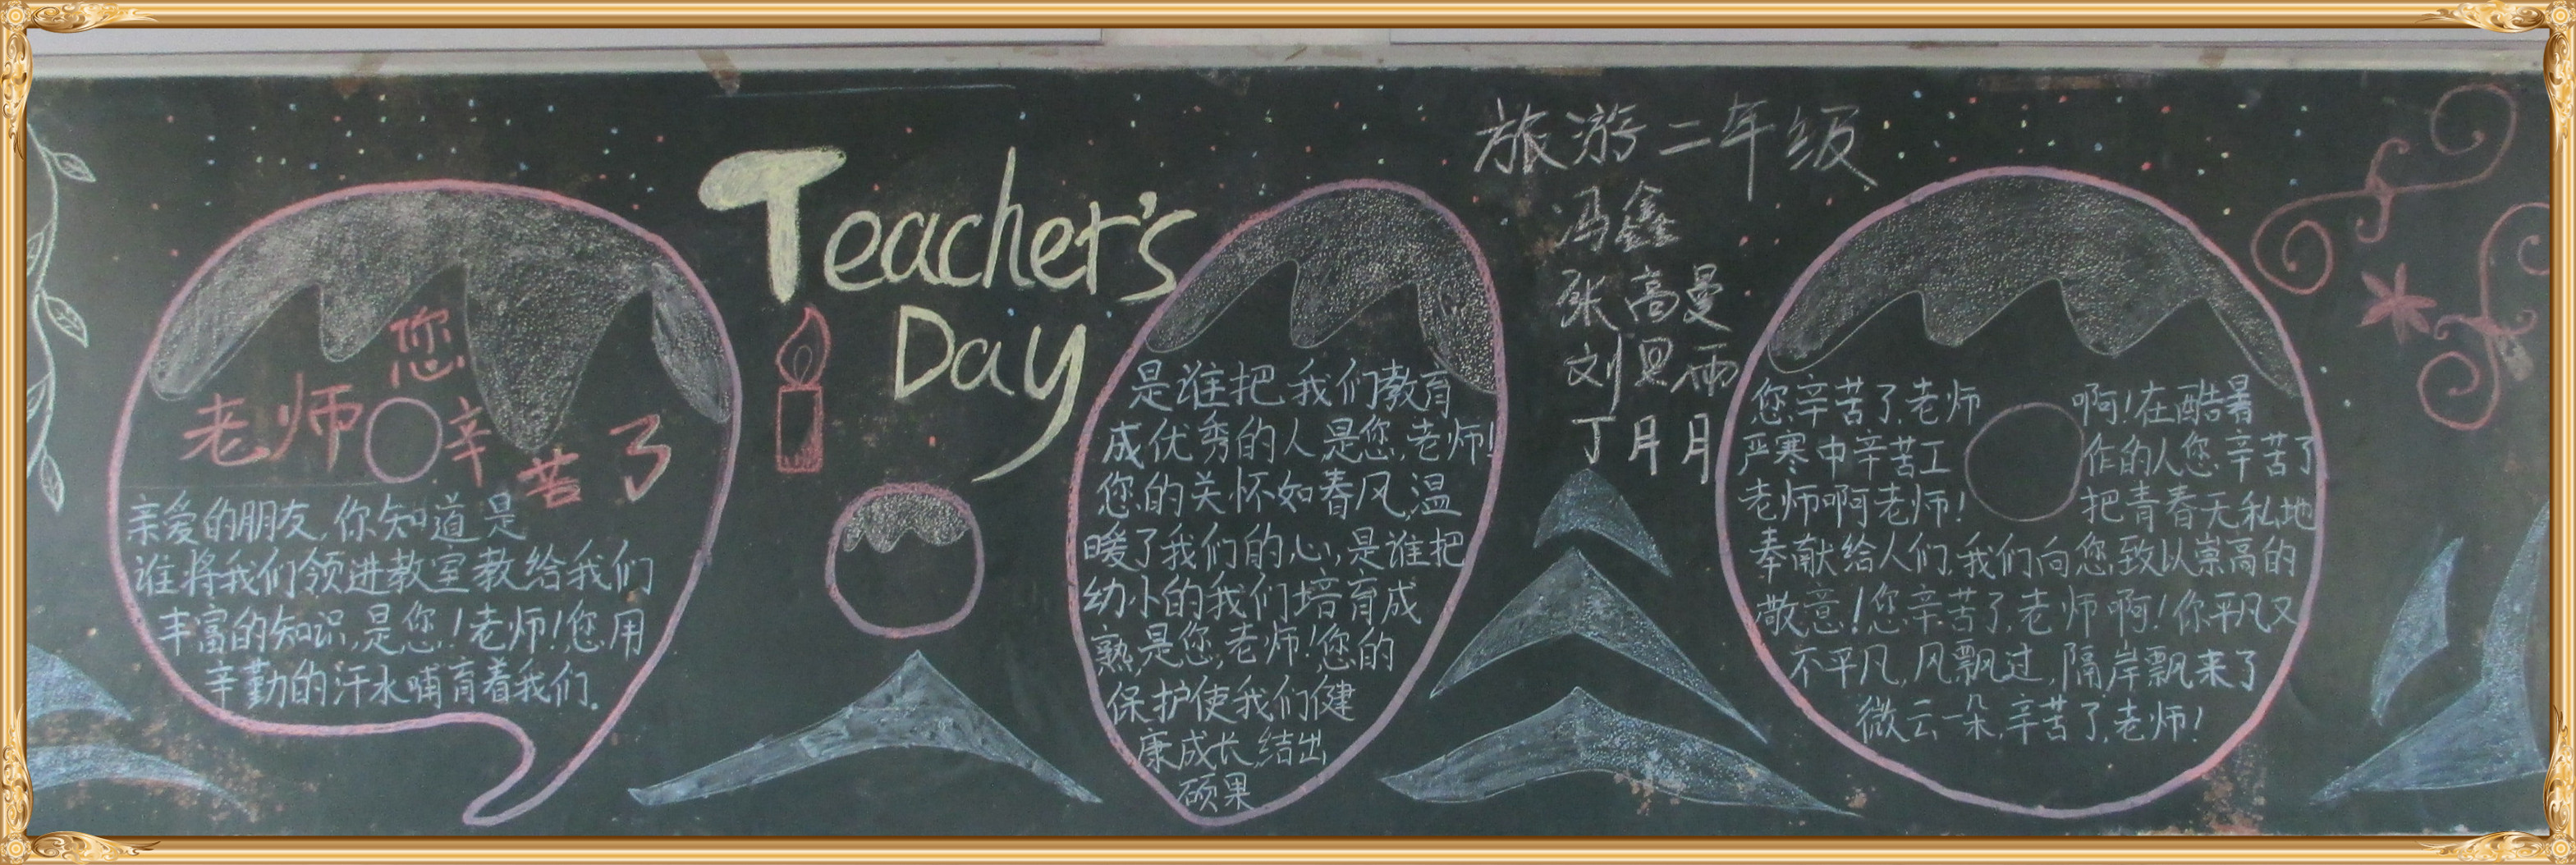 老师您辛苦了
亲爱的朋友,你知道是
谁将我们领进教室教给我们
丰富的知识,是您!老师!您用
辛勤的汗水哺育着我们.
Teacher's
Day
是谁把我们教育
成优秀的人是您,老师!
您的关怀如春风,温
暖了我们的心,是谁把
幼小的我们培育成
熟,是您,老师!您的
保护使我们健
康成长,结出
硕果
旅游二年级
冯鑫
张高曼
刘雨
丁月月
您辛苦了,老师啊!在酷暑
严寒中辛苦工作的人您辛苦了
老师啊老师!把青春无私地
奉献给人们,我们向您致以崇高的
敬意!您辛苦了,老师啊!你平凡又
不平凡,风飘过,隔岸飘来了
微云一朵,辛苦了,老师!